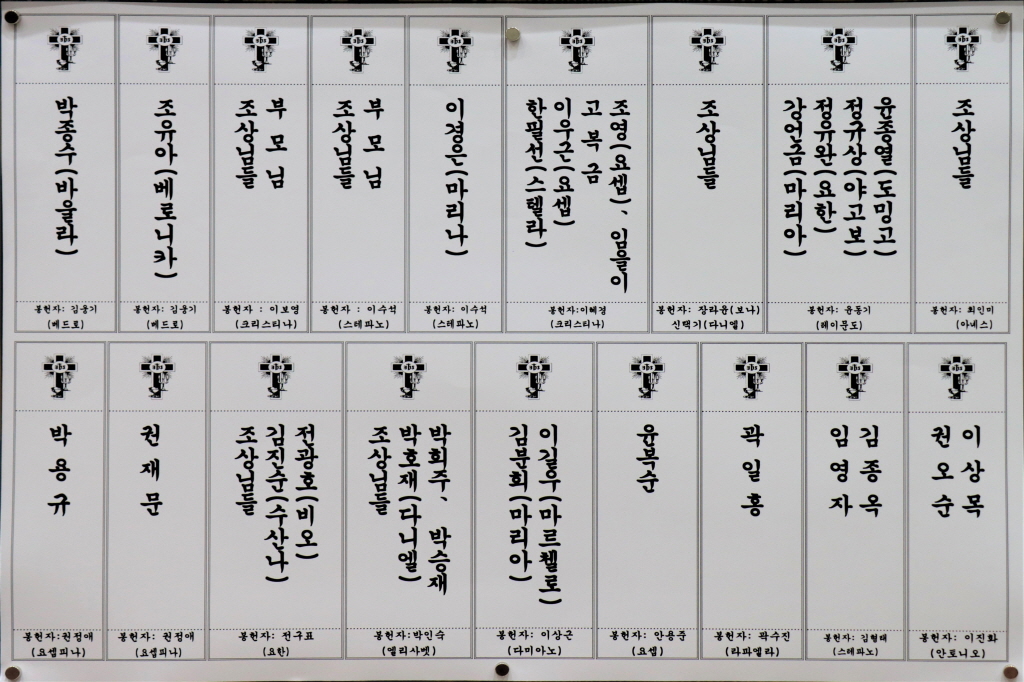 박종수(바울라)
봉헌자: 김웅기
(베드로)
조유아(베로니카)
봉헌자: 김웅기
(베드로)
부모님
조상님들
봉헌자 : 이보영
(크리스티나)
부모님
조상님들
봉헌자 : 이수석
(스테파노)
이경은(마리나)
봉헌자: 이수석
(스테파노)
조영(요셉)、임을이
고복금
이우근(요셉)
한필선(스텔라)
봉헌자:이혜경
(크리스티나)
조상님들
봉헌자: 장라윤(보나)
신택기(다니엘)
윤종열(도밍고)
정규상(야고보)
정유완(요한)
강언금(마리아)
봉헌자: 윤동기
(레이문도)
조상님들
봉헌자: 최인미
(아녜스)
박용규
봉헌자:권정애
(요셉피나)
권재문
봉헌자: 권정애
(요셉피나)
전광호(비오)
김진순(수산나)
조상님들
봉헌자: 전구표
(요한)
박회주、박승재
박호재(다니엘)
조상님들
봉헌자:박인숙
(엘리사벳)
이길우(마르첼로)
김분회(마리아)
봉헌자: 이상근
(다미아노)
윤복순
봉헌자: 안용준
(요셉)
곽일흥
봉헌자: 곽수진
(라파엘라)
김종옥
임영자
봉헌자: 김형태
(스테파노)
이상목
권오순
봉헌자: 이진화
(안토니오)